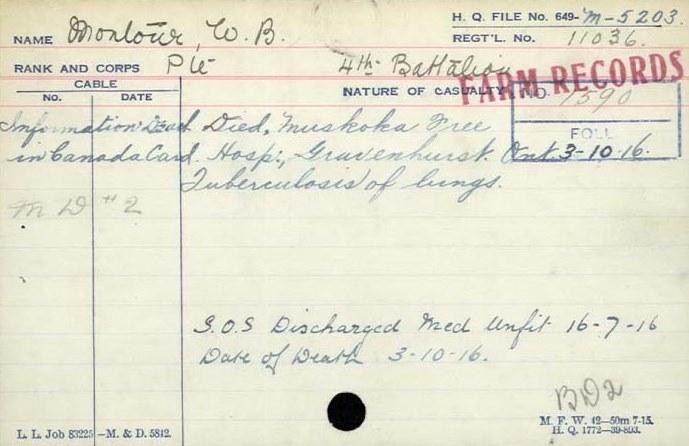 H. Q. FILE No. 649-M-5203.
NAME Montour, W. B.
REGT'L. No. 11036.
RANK AND CORPS Pte 4th Battalion
FARM RECORDS
CABLE
NATURE OF CASUALTY
NO. 1590
No. DATE
FOLL
Information Dead Died, Muskoka Free
in Canada Card. Hosp:, Gravenhurst. Ont. 3-10-16.
Tuberculosis of lungs.
M D #2
S.O.S Discharged Med Unfit 16-7-16
Date of Death 3-10-16.
BD2
L. L. Job 83225 —M. & D. 5812.
M. F. W. 42—50m 7-15.
H. Q. 1772—39-893.